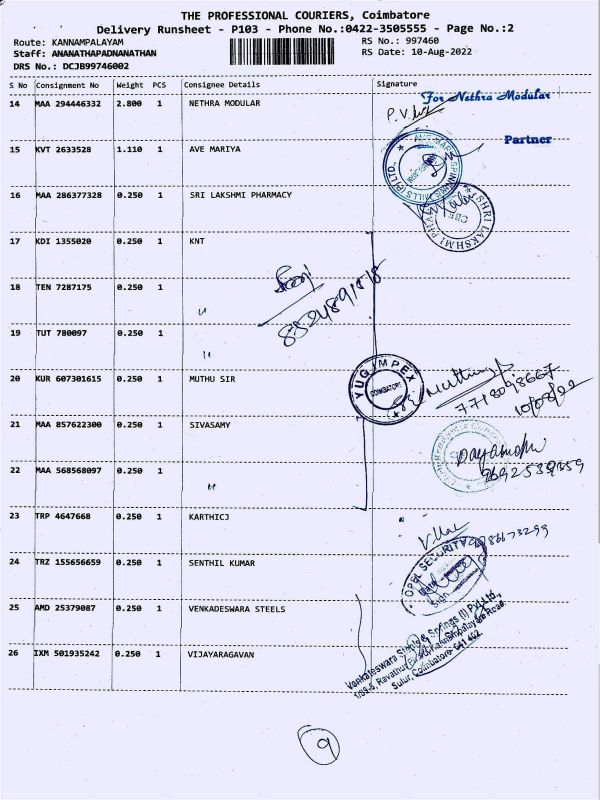 THE PROFESSIONAL COURIERS, Coimbatore
Delivery Runsheet - P103 - Phone No.:0422-3505555 - Page No.:2
Route: KANNAMPALAYAM RS No.: 997460
Staff: ANANATHAPADNANATHAN RS Date: 10-Aug-2022
DRS No.: DCJB99746002
S No Consignment No Weight PCS Consignee Details Signature
14 MAA 294446332 2.800 1 NETHRA MODULAR For Nethra Modular
P.V.
Partner
15 KVT 2633528 1.110 1 AVE MARIYA
16 MAA 286377328 0.250 1 SRI LAKSHMI PHARMACY
SHRI LAKSHMI PHA
CBE
17 KDI 1355020 0.250 1 KNT
18 TEN 7287175 0.250 1 "
19 TUT 780097 0.250 1 "
20 KUR 607301615 0.250 1 MUTHU SIR
YUG IMPEX
COIMBATORE
7718098667
10/08/22
21 MAA 857622300 0.250 1 SIVASAMY
22 MAA 568568097 0.250 1 "
9692539859
23 TRP 4647668 0.250 1 KARTHICJ
24 TRZ 155656659 0.250 1 SENTHIL KUMAR
OPEL SECURITY
25 AMD 25379087 0.250 1 VENKADESWARA STEELS
26 IXM 501935242 0.250 1 VIJAYARAGAVAN
Venkateswara Steels & Springs (I) Pvt Ltd.,
Sulur, Coimbatore- 641 402.
9